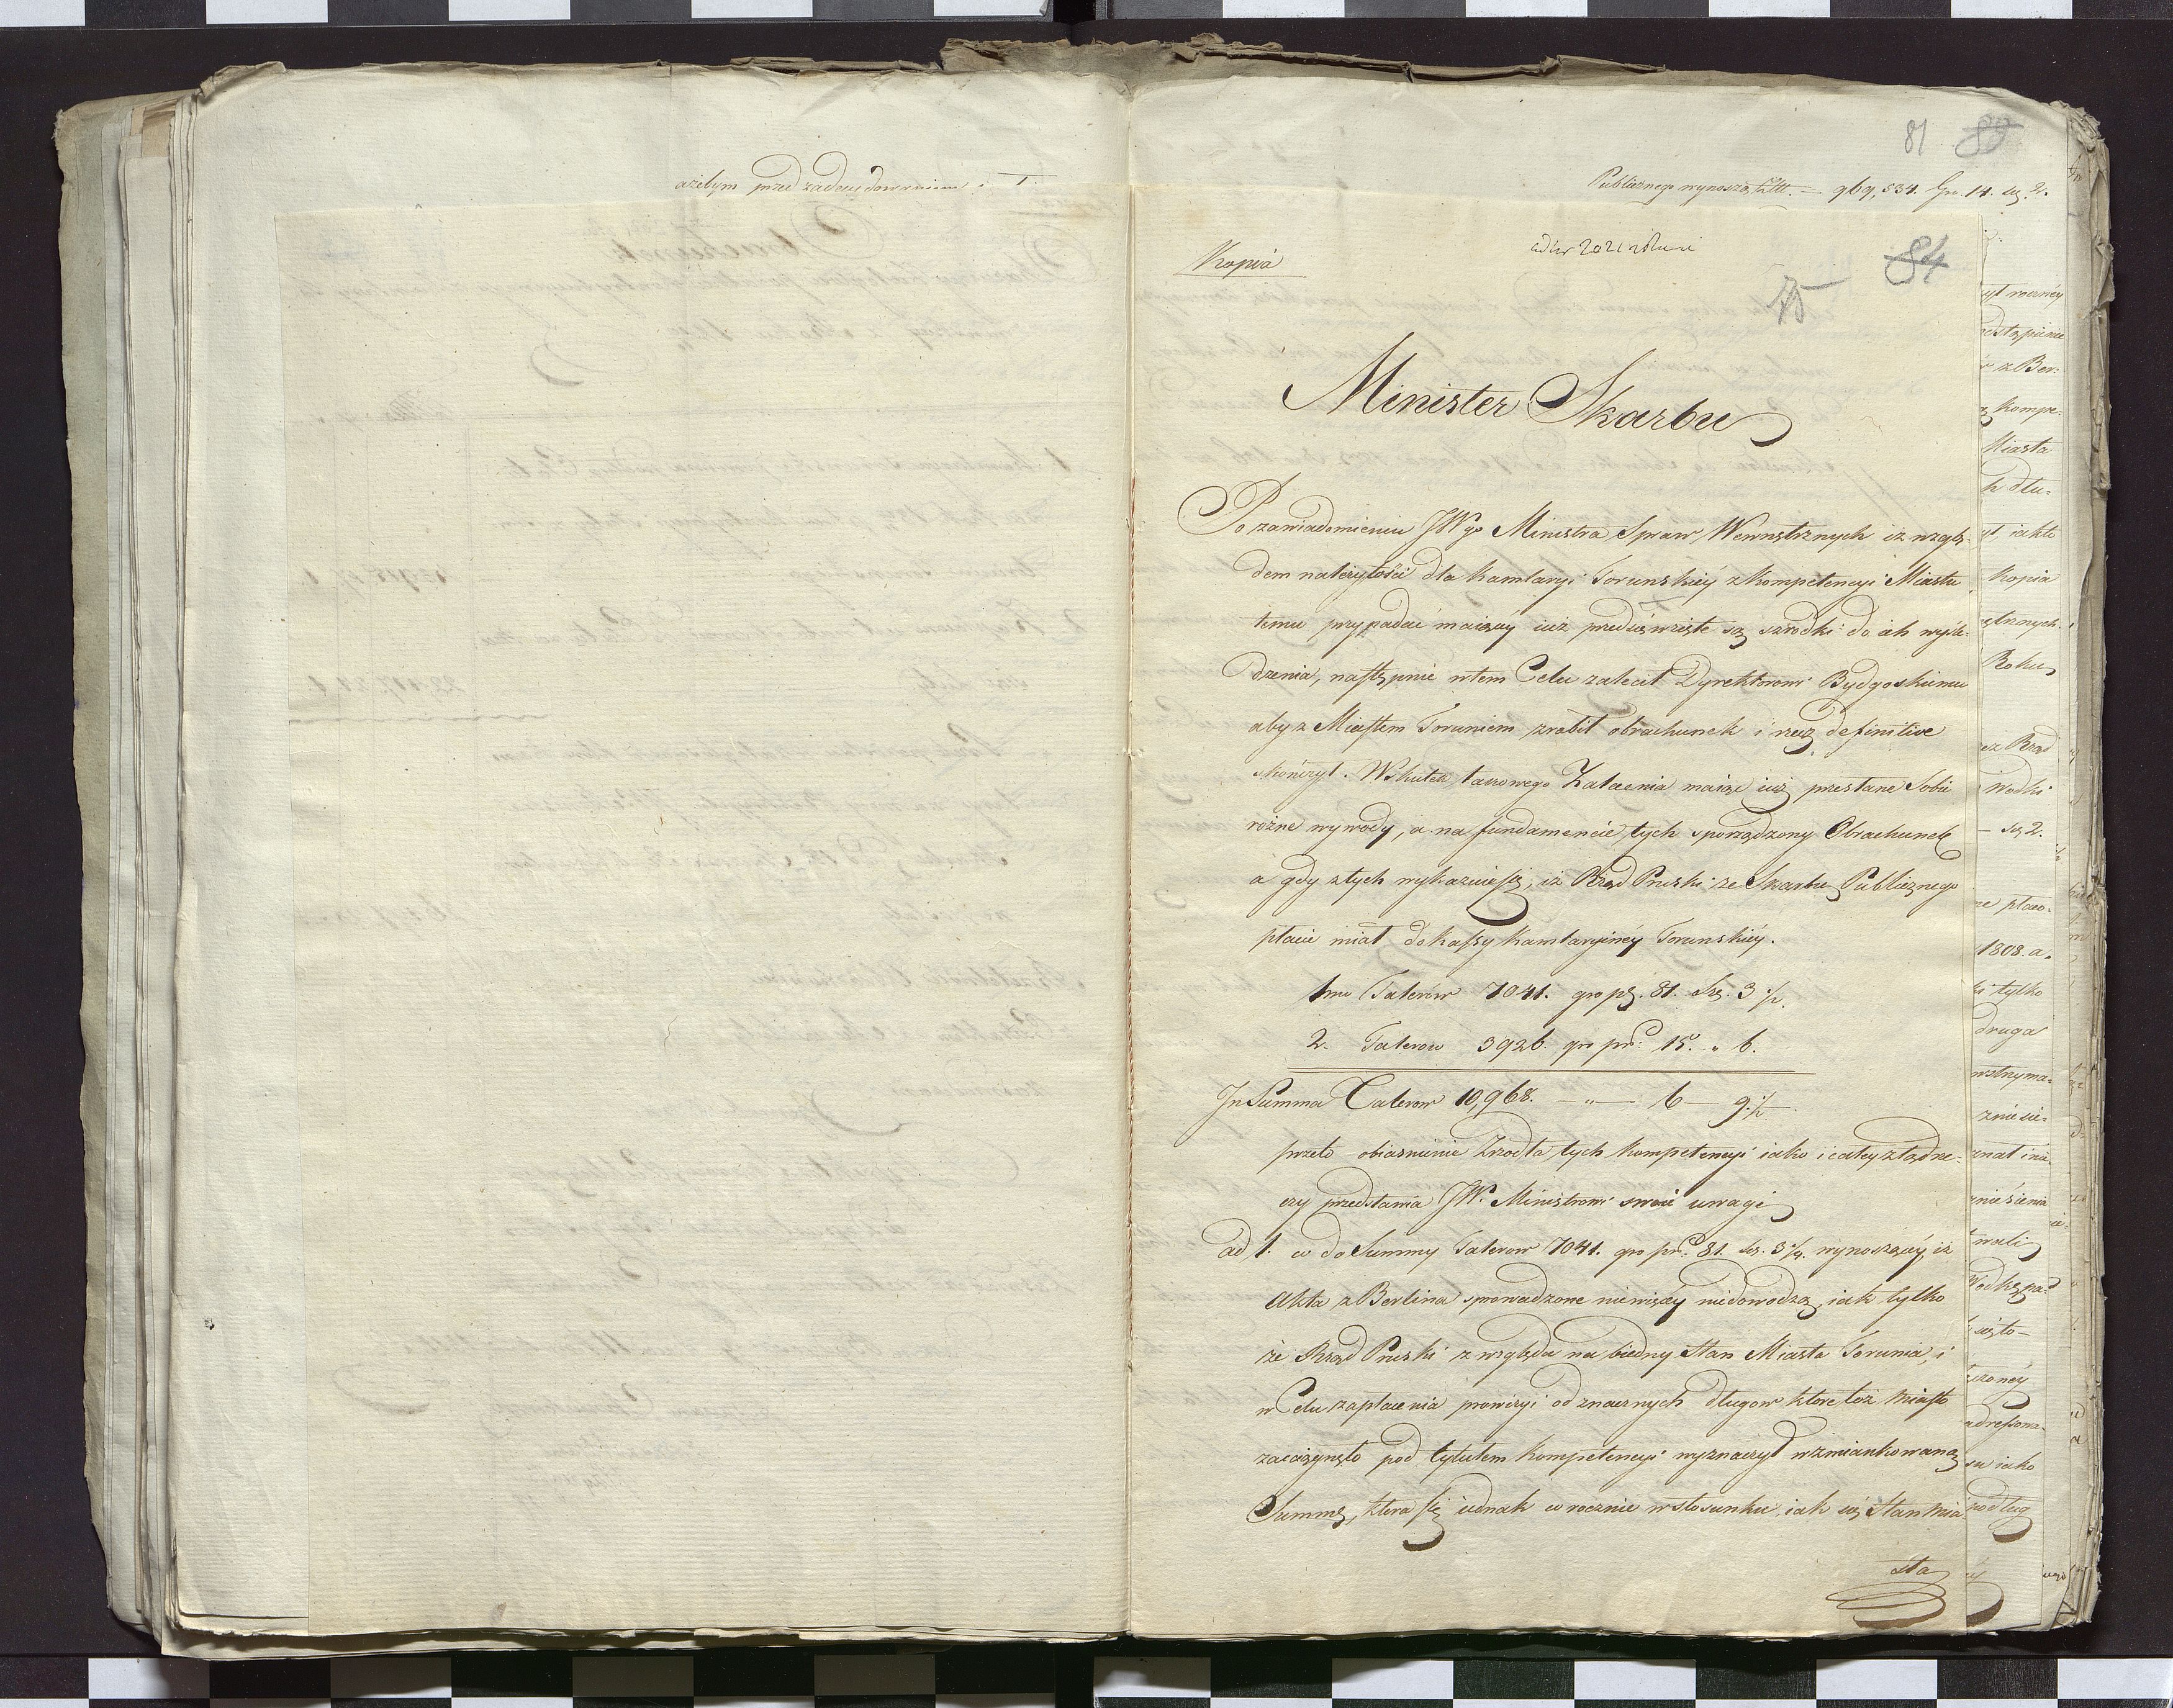 ażebym przed zadecydowaniem
81
Publicznego wynoszą tall. — 969,534. Gr. 14. sz. 2.
Kopia
84
75
Minister Skarbu
Po zawiadomieniu JWgo Ministra Spraw Wewnętrznych iż wzglę-
dem należytości dla Kamlaryi Toruńskiéy z Kompetencyi Miastu
temu przypadać maiącéy iuż przedsięwzięte są szrodki do ich wyśle-
dzenia, następnie w tem Celu zalecił Dyrektorowi Bydgoskiemu
aby z Miastem Toruniem zrobił obrachunek i rzecz definitive
skończył. Wskutek takowego Zalecenia maiąc iuż przesłane Sobie
różne wywody, a na fundamencie tych sporządzony Obrachunek
a gdy z tych wykazuie się, iż Rząd Pruski ze Skarbu Publicznego
płacić miał do Kassy Kamlaryinéy Toruńskiéy.
1mo Talerów 7041. gr pr. 81. sz. 3 1/2.
2. Talerow 3926. gr pr: 15. " 6.
In Summa Talerow 10,968. — " — 6 — 9 1/2
przeto obiasnienie Zrzodła tych Kompetencyi iako i całey ztąd rze-
czy przedstawia JW. Ministrowi swoie uwagi
ad 1. co do Summy Talerow 7041. gr pr. 81. sz. 3 1/2. wynoszącéy, iż
Akta z Berlina sprowadzone niewięcéy niedowodzą, iak tylko
że Rząd Pruski z względu na biedny Stan Miasta Torunia, i
w Celu zapłacenia prowizyi od znacznych długow które toż Miasto
zaciągnęło pod tytułem Kompetencyi wyznaczył wzmiankowaną
Summę, która się iednak corocznie w stosunku iak się Stan Mia-
sta
yt roczney
z Ber:
Kompe:
Miasta
h dłu-
iakto
Kopia
Roku
Rząd
Wodki
sz 2.
1808. a
tylko
druga
wstryma-